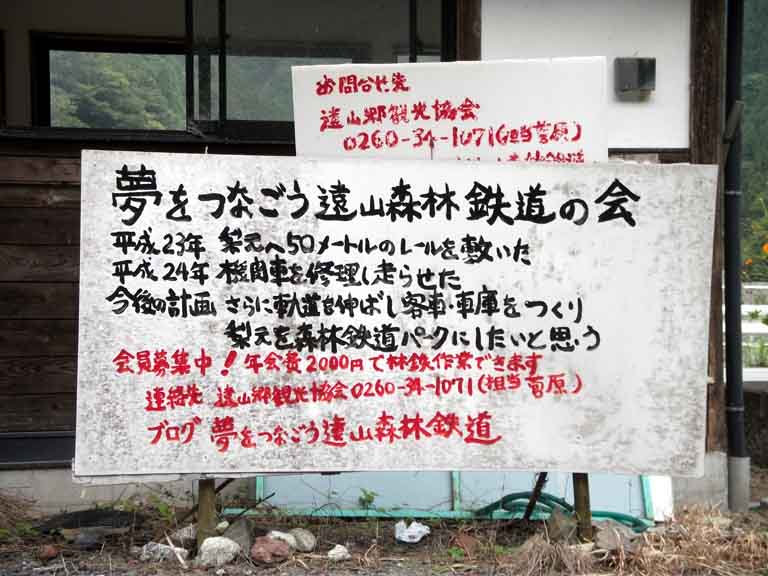 お問合せ先
遠山郷観光協会
0260-34-1071(担当菅原)
夢をつなごう遠山森林鉄道の会
平成23年 梨元へ50メートルのレールを敷いた
平成24年 機関車を修理し走らせた
今後の計画 さらに軌道を伸ばし客車・車庫をつくり
梨元を森林鉄道パークにしたいと思う
会員募集中! 年会費2000円で林鉄作業できます
連絡先 遠山郷観光協会0260-34-1071(担当菅原)
ブログ 夢をつなごう遠山森林鉄道